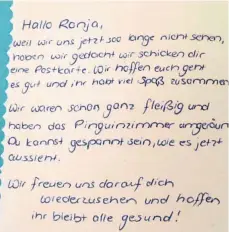 Hallo Ronja,
weil wir uns jetzt soo lange nicht sehen,
haben wir gedacht wir schicken dir
eine Postkarte. Wir hoffen euch geht
es gut und ihr habt viel Spaß zusammen
Wir waren schon ganz fleißig und
haben das Pinguinzimmer umgeräum
Du kannst gespannt sein, wie es jetzt
aussieht.
Wir freuen uns darauf dich
wiederzusehen und hoffen
ihr bleibt alle gesund!